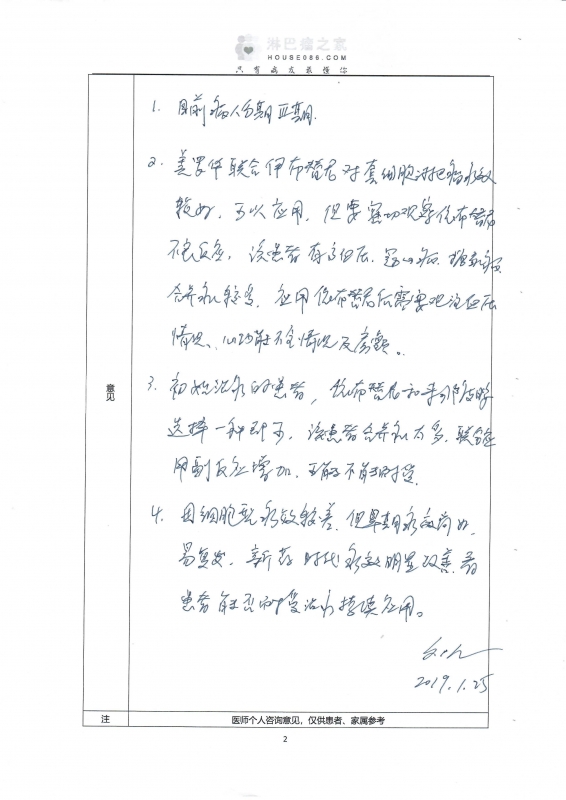 淋巴瘤之家
HOUSE086.COM
只有病友最懂你
1. 目前病人分期Ⅲ期.
2. 美罗华联合伊布替尼对套细胞淋巴瘤疗效
较好, 可以应用, 但要密切观察伊布替尼
不良反应, 该患者有高血压, 冠心病, 糖尿病
合并症较多, 应用伊布替尼后需要关注血压
情况、心功能不全情况及房颤。
3. 初始治疗的患者, 伊布替尼和来那度胺
选择一种即可, 该患者合并症太多, 联合应
用副反应增加, 可能不能耐受.
4. 套细胞 疗效较差, 但早期疗效尚好,
易复发, 新药时代疗效明显改善, 看
患者能否耐受治疗持续应用。
2019.1.25
意见
注
医师个人咨询意见，仅供患者、家属参考
2